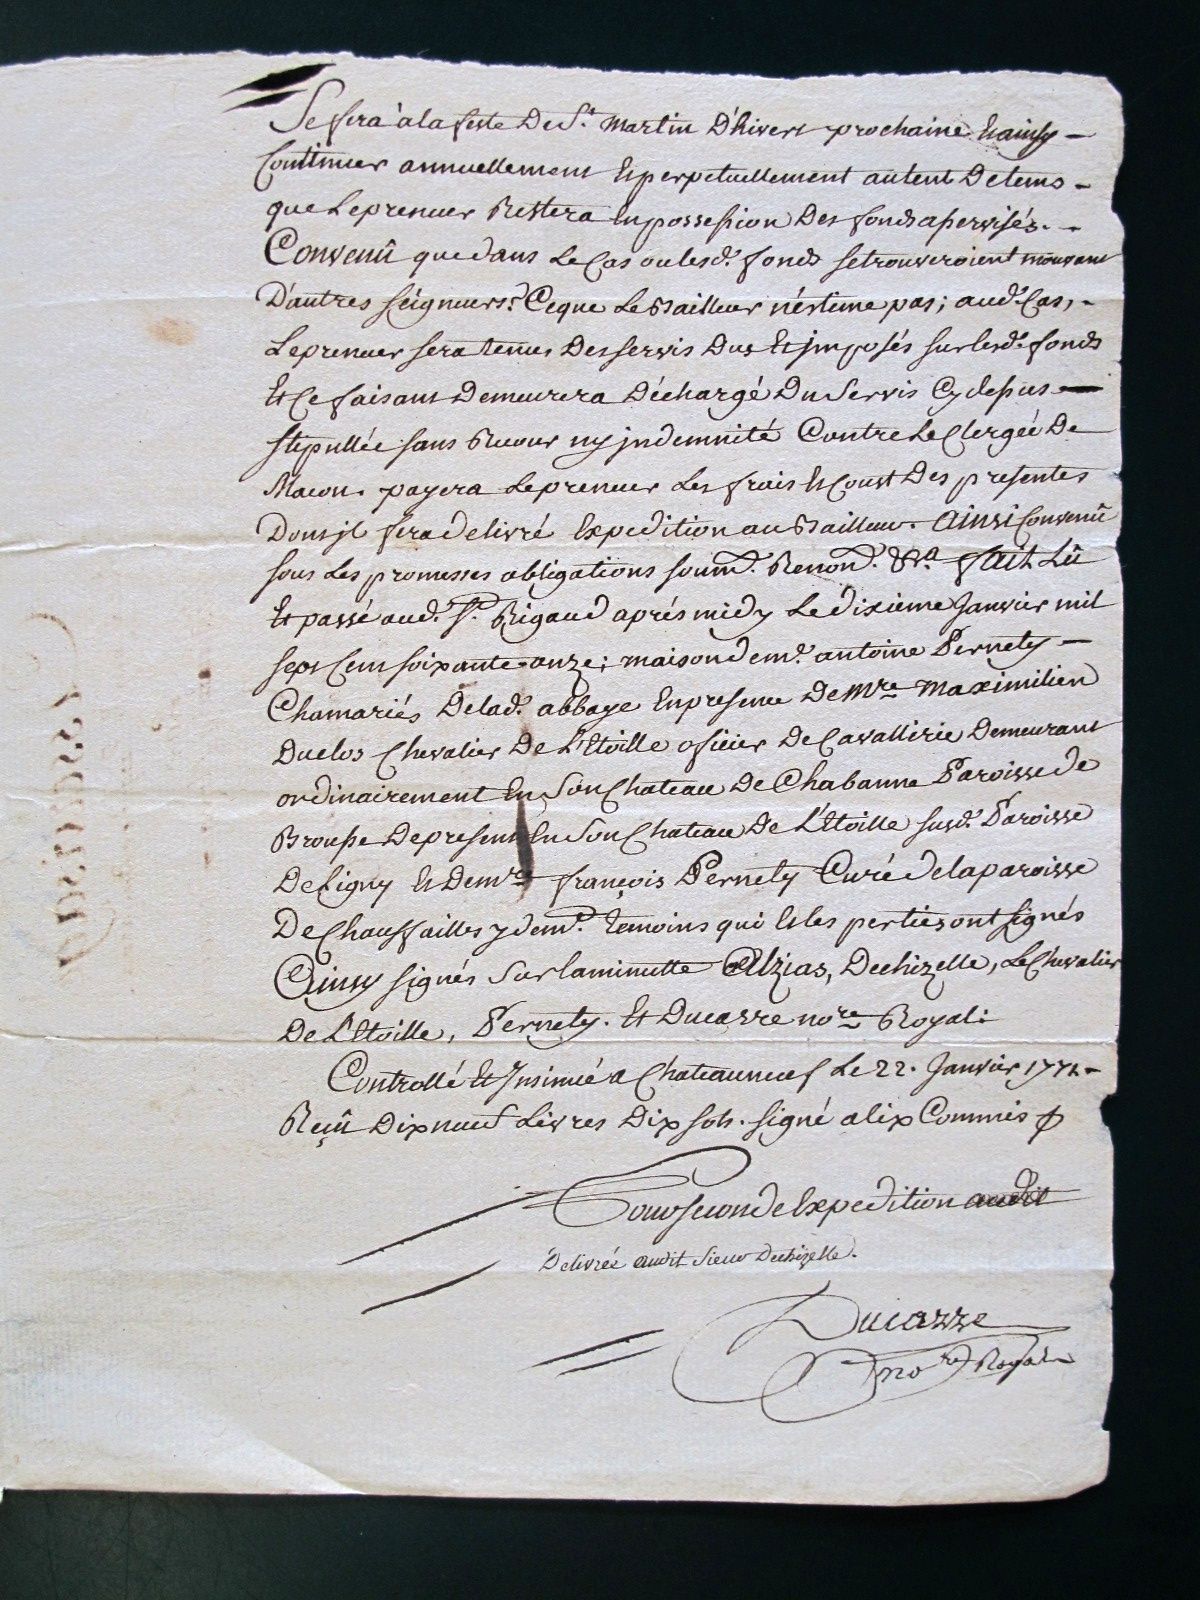 Se fera a la feste De St. Martin D'hivert prochaine Et ainsy –
Continuer annuellement Et perpetuellement autent De tems –
que Le preneur Restera En possession Des fonds aservisés. –
Convenû que dans Le Cas ou lesd. fonds se trouveroient mouvant
D'autres seigneurs? Ce que Le Bailleur n'éstime pas; aud. Cas, –
Le preneur sera tenus Des servis Dus Et jmposés sur lesd. fonds
Et Ce faisant Demeurera Déchargé Du Servis Cy depus –
stipullée sans Recour ny jndemnité Contre Le Clergée De
Macon. payera Le preneur Les frais Et Coust Des presentes
Dont jl sera delivré Expedition au Bailleur. Ainsi Convenû
sous Les promesses obligations soum. Renon. &ra. fait Lû
Et passé aud. St. Rigaud aprés midy Le dixieme Janvier mil
sept Cent soixante onze; maison de mr. antoine Pernety –
Chamariés De lad. abbaye En presence De Mre maximilien
Duclos Chevalier De L'Etoille oficier De Cavallirie Demeurant
ordinairement En Son Chateau De Chabanne Paroisse de
Brousse De present En Son Chateau De L'Etoille susd. Paroisse
De Ligny Et De mre françois Pernety Curé de la paroisse
De Chauffailles y dem. temoins qui Et les perties ont signés
Ainsy signés Sur la minutte Alzias, Dechizelle, Le Chevalier
De L'Etoille, Pernety. Et Ducasse nore Royal:
Controllé Et Jnsinué a Chateauneuf Le 22. Janvier 1771. –
Reçû Dix neuf Livres Dix sols. signé alix Commis
Pour seconde Expedition audit
Delivrée audit Sieur Dechizelle.
Ducasse
nore Royal